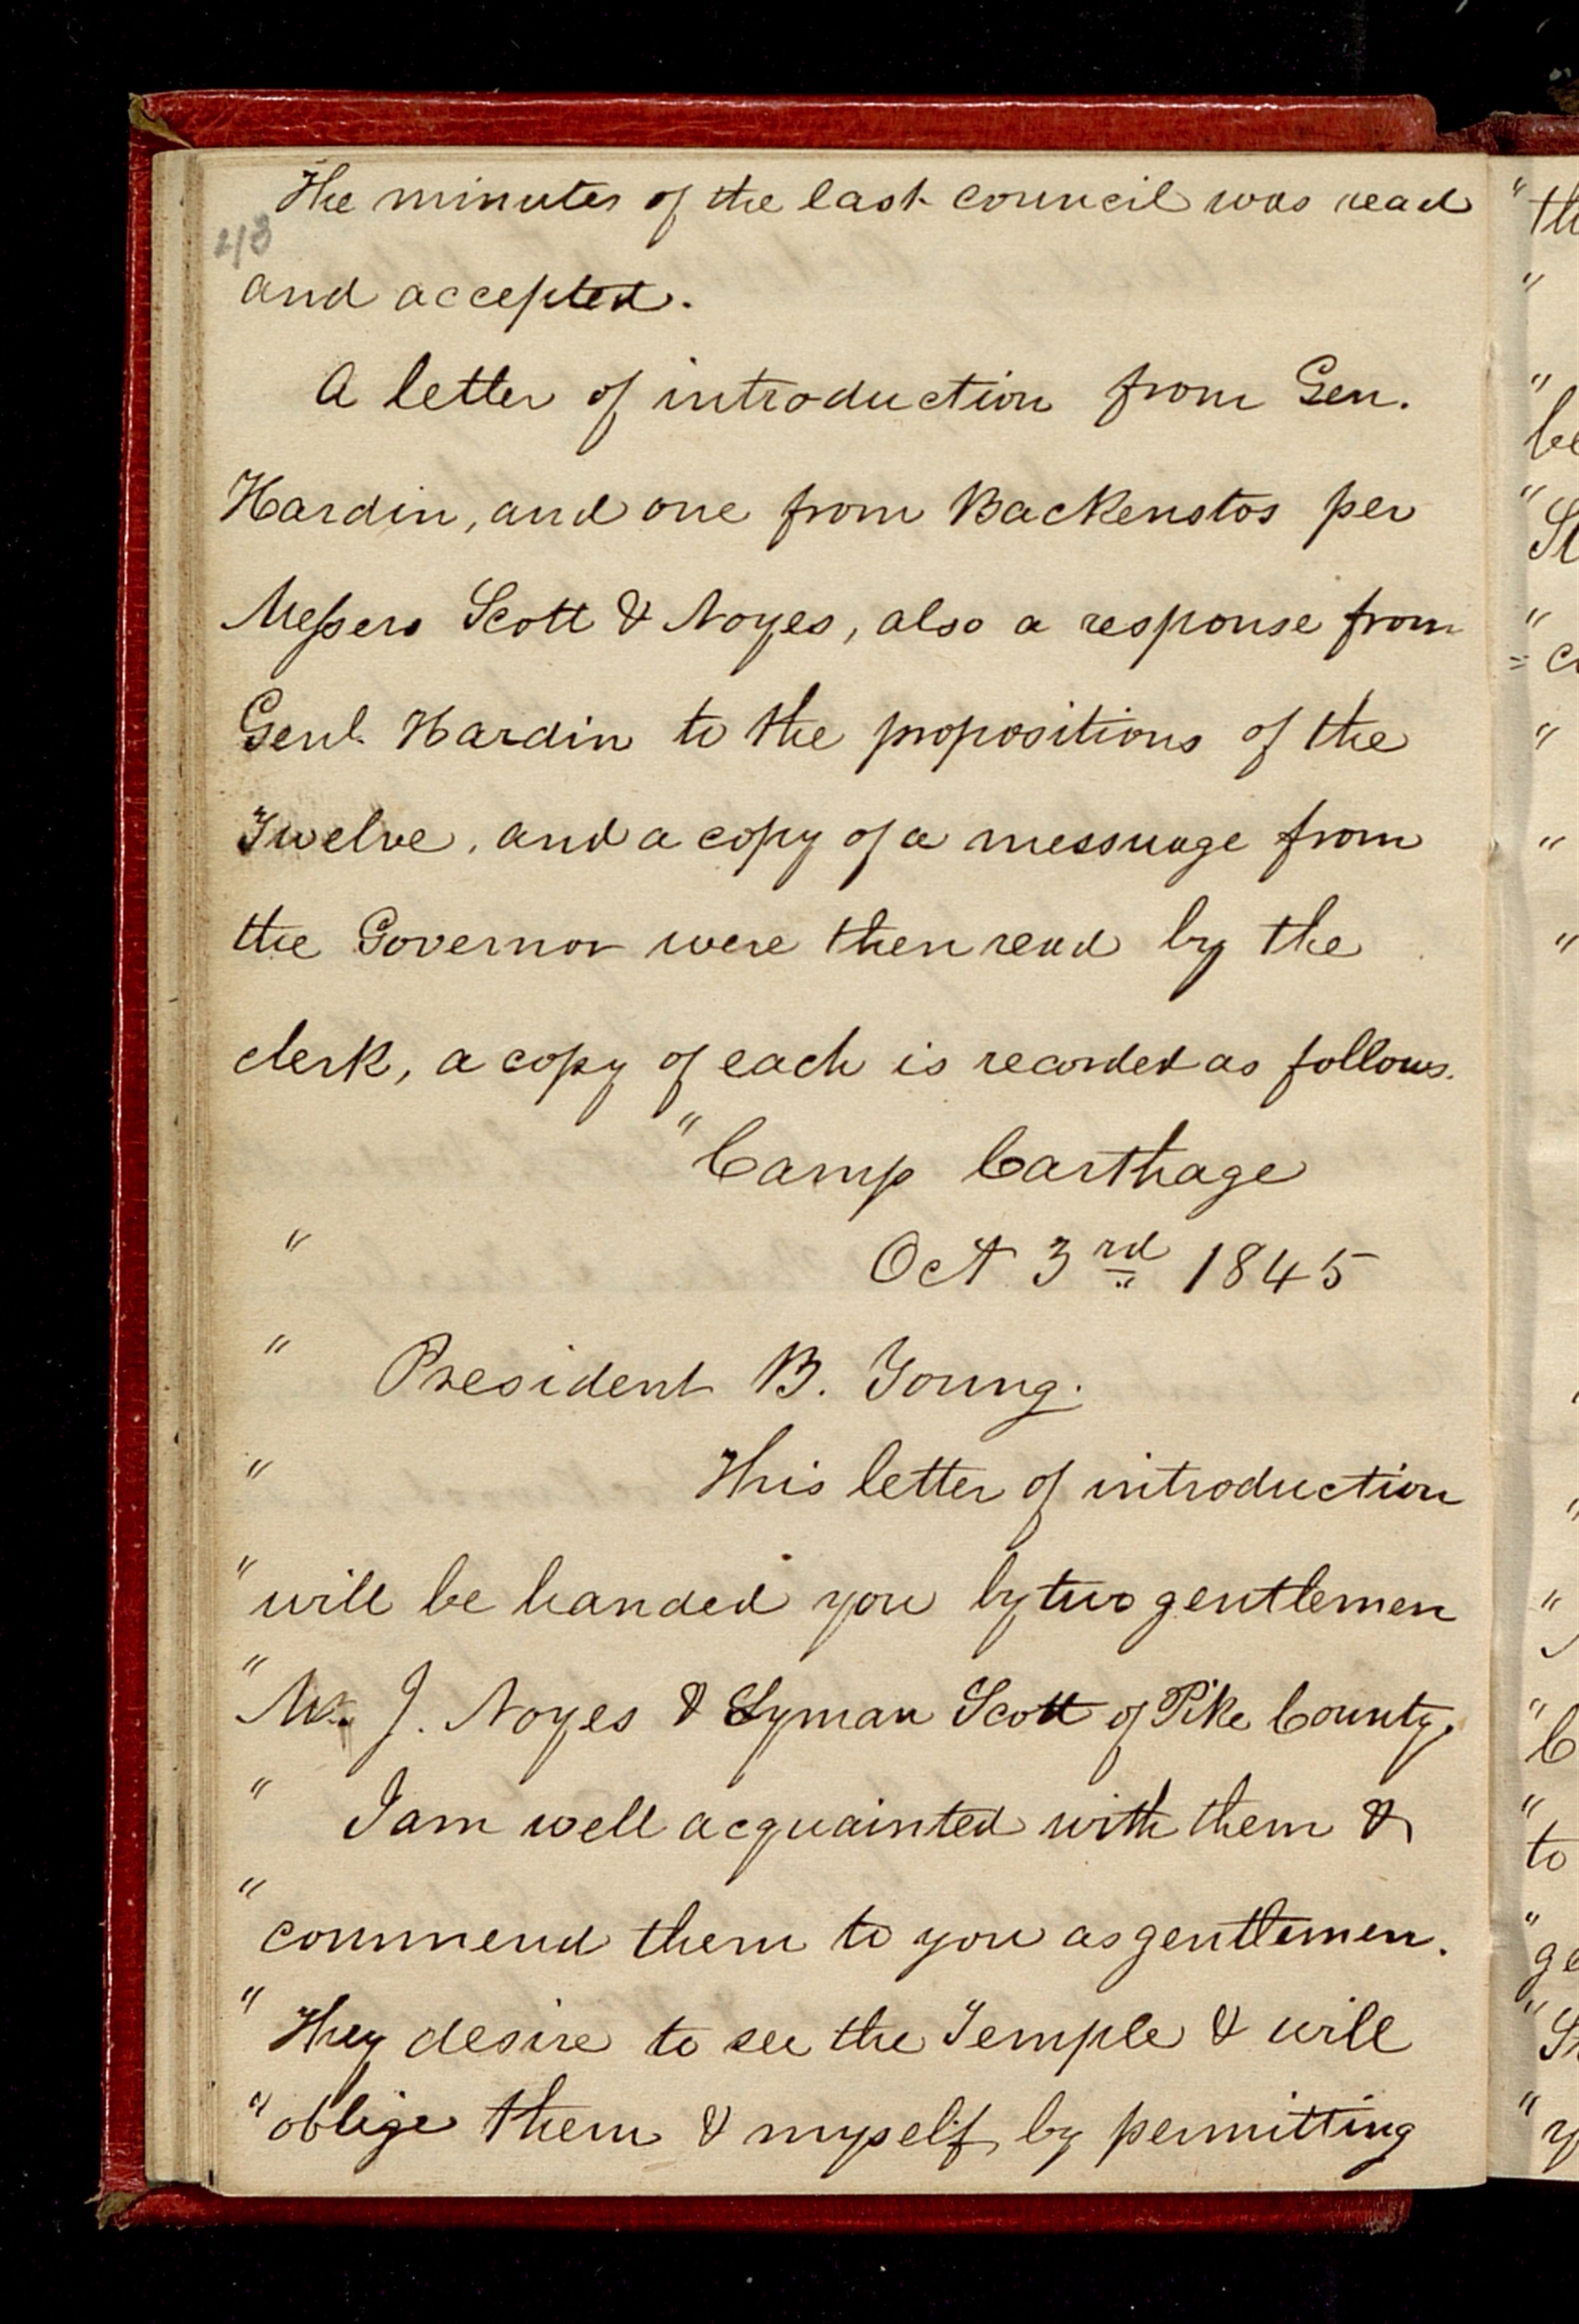 The minutes of the last council was read
48
and accepted.
A letter of introduction from Gen.
Hardin, and one from Backenstos per
Messers Scott & Noyes, also a response from
Genl. Hardin to the propositions of the
Twelve, and a copy of a messuage from
the Governor were then read by the
clerk, a copy of each is recorded as follows.
"Camp Carthage
" Oct 3rd 1845
" President B. Young.
" This letter of introduction
" will be handed you by two gentlemen
" J. Noyes & Lyman Scott of Pike County.
" I am well acquainted with them &
" commend them to you as gentlemen.
" They desire to see the Temple & will
" oblige them & myself by permitting
" th
"
" be
"
"
"
"
"
"
"
" to
" ge
"
"